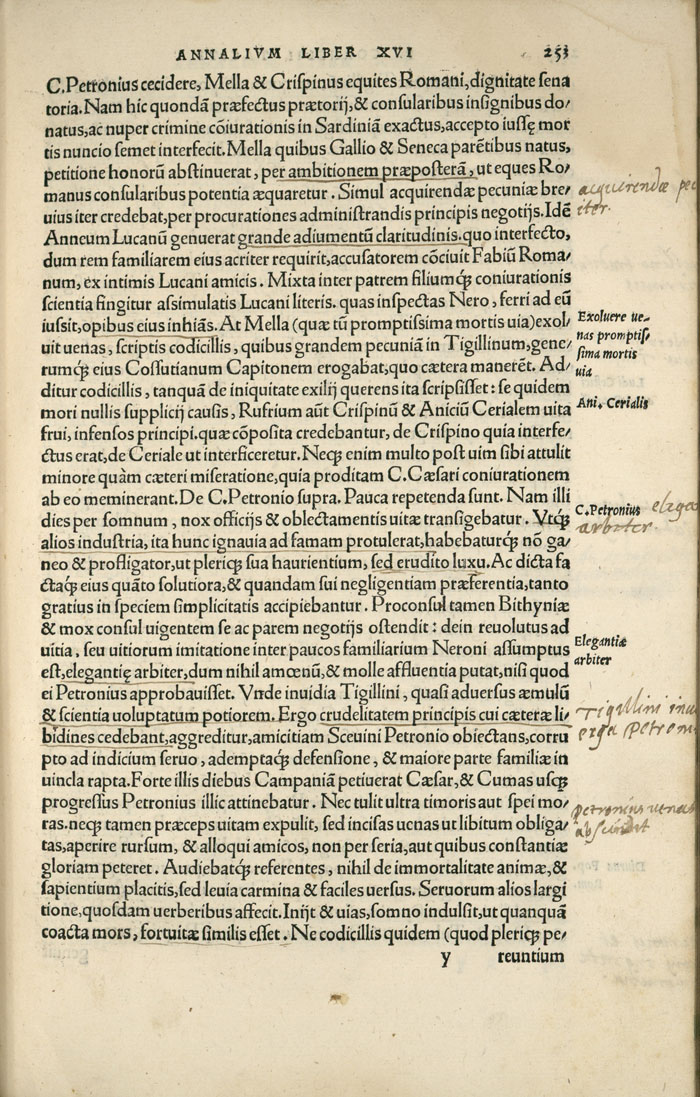 ANNALIVM LIBER XVI 253
C.Petronius cecidere, Mella & Crispinus equites Romani, dignitate sena
toria. Nam hic quondã præfectus prætorij,& consularibus insignibus do/
natus,ac nuper crimine cõiurationis in Sardiniã exactus,accepto iussę mor
tis nuncio semet interfecit. Mella quibus Gallio & Seneca parẽtibus natus,
petitione honorũ abstinuerat, per ambitionem præposterã, ut eques Ro/
manus consularibus potentia æquaretur. Simul acquirendæ pecuniæ bre/
uius iter credebat,per procurationes administrandis principis negotijs. Idẽ
Anneum Lucanũ genuerat grande adiumentũ claritudinis.quo interfecto,
dum rem familiarem eius acriter requirit,accusatorem cõciuit Fabiũ Roma/
num, ex intimis Lucani amicis. Mixta inter patrem filiumq́; coniurationis
scientia fingitur assimulatis Lucani literis. quas inspectas Nero, ferri ad eũ
iussit,opibus eius inhiãs. At Mella (quæ tũ promptissima mortis uia)exol/
uit uenas, scriptis codicillis, quibus grandem pecuniã in Tigillinum,gene/
rumq́; eius Cossutianum Capitonem erogabat,quo cætera manerẽt. Ad/
ditur codicillis, tanquã de iniquitate exilij querens ita scripsisset : se quidem
mori nullis supplicij causis, Rufrium aũt Crispinũ & Aniciũ Cerialem uita
frui, infensos principi.quæ cõposita credebantur, de Crispino quia interfe/
ctus erat,de Ceriale ut interficeretur. Neq́; enim multo post uim sibi attulit
minore quàm cæteri miseratione,quia proditam C.Cæsari coniurationem
ab eo meminerant. De C.Petronio supra. Pauca repetenda sunt. Nam illi
dies per somnum, nox officijs & oblectamentis uitæ transigebatur. Vtq́;
alios industria, ita hunc ignauia ad famam protulerat,habebaturq́; nõ ga/
neo & profligator,ut pleriq́; sua haurientium, sed erudito luxu. Ac dicta fa
ctaq́; eius quãto solutiora,& quandam sui negligentiam præferentia,tanto
gratius in speciem simplicitatis accipiebantur. Proconsul tamen Bithyniæ
& mox consul uigentem se ac parem negotijs ostendit : dein reuolutus ad
uitia, seu uitiorum imitatione inter paucos familiarium Neroni assumptus
est,elegantię arbiter,dum nihil amœnũ,& molle affluentia putat,nisi quod
ei Petronius approbauisset. Vnde inuidia Tigillini, quasi aduersus æmulũ
& scientia uoluptatum potiorem. Ergo crudelitatem principis cui cæteræ li/
bidines cedebant,aggreditur,amicitiam Sceuini Petronio obiectans,corru
pto ad indicium seruo, ademptaq́; defensione, & maiore parte familiæ in
uincla rapta. Forte illis diebus Campaniã petiuerat Cæsar,& Cumas usq́;
progressus Petronius illic attinebatur. Nec tulit ultra timoris aut spei mo/
ras.neq́; tamen præceps uitam expulit, sed incisas uenas ut libitum obliga/
tas,aperire rursum, & alloqui amicos, non per seria,aut quibus constantiæ
gloriam peteret. Audiebatq́; referentes, nihil de immortalitate animæ,&
sapientium placitis,sed leuia carmina & faciles uersus. Seruorum alios largi
tione,quosdam uerberibus affecit. Inijt & uias,somno indulsit,ut quanquã
coacta mors, fortuitæ similis esset. Ne codicillis quidem (quod pleriq́; pe/
y reuntium
acquirendæ pec
iter.
Exoluere ue-
nas promptis/
sima mortis
uia
Ani. Cerialis
C.Petronius elega
arbiter.
Elegantiæ
arbiter
Tigillini inui
erga Petroni
petronius uenas
abscindit